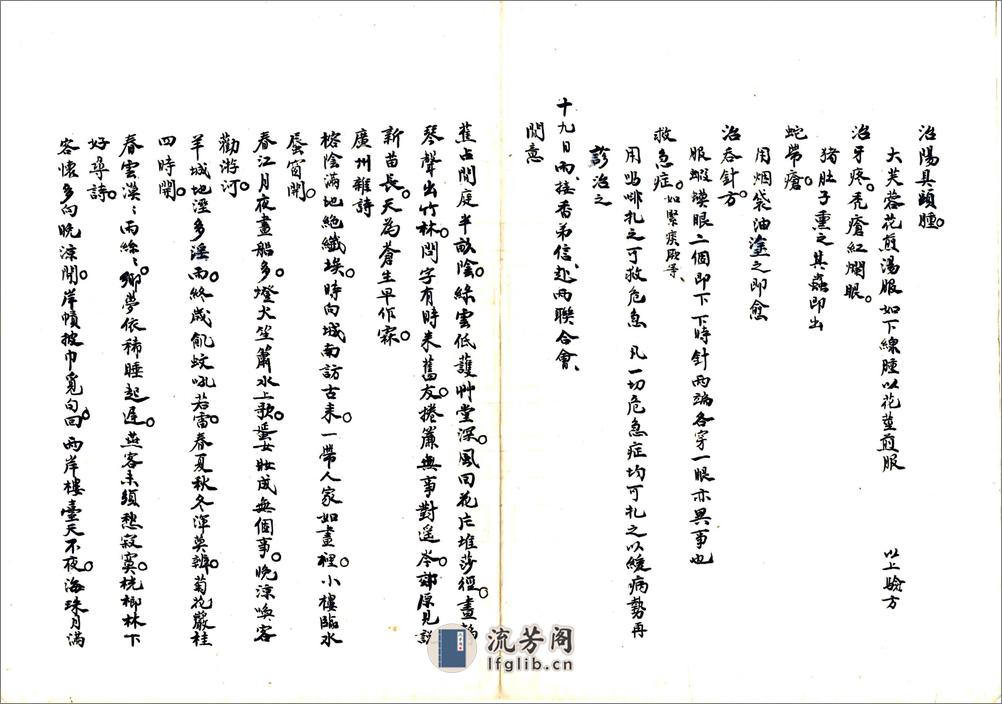 治陽具頭腫。
大芙蓉花煎湯服如下線腫以花莖煎服 以上驗方
治牙疼。禿瘡紅爛眼。
豬肚子熏之其蟲即出
蛇帶瘡。
用烟袋油塗之即愈
治吞針方。
服蝦蟆眼二個即下下時針兩端各穿一眼亦異事也
救急症。如緊痰厥等、
用嗎啡扎之可救危急 凡一切危急症均可扎之以緩病勢再
診治之
十九日雨、接香弟信、赴兩聯合會、
閒意
蕉占閒庭半畝陰。綠雲低護艸堂深。風回花片堆莎徑。晝韵
琴聲出竹林。問字有時來舊友。捲簾無事對遥岑。郊原見説
新苗長。天為蒼生早作霖。
廣州雜詩
榕陰滿地絶纖埃。時向城南訪古来。一帶人家如畫裡。小樓臨水
蜃窗開。
春江月夜畫船多。燈火笙簫水上歌。蜑女妝成無個事。晚涼喚客
勸游河。
羊城地溼多淫雨。終歲飢蚊吼若雷。春夏秋冬渾莫辨。菊花嚴桂
四時開。
春雲漠ミ雨絲ミ。鄉夢依稀睡起遲。燕客未須愁寂寞。桄榔林下
好尋詩。
客懷多向晚涼開。岸幘披巾覓句回。兩岸樓臺天不夜。海珠月滿
流芳阁
lfglib.cn